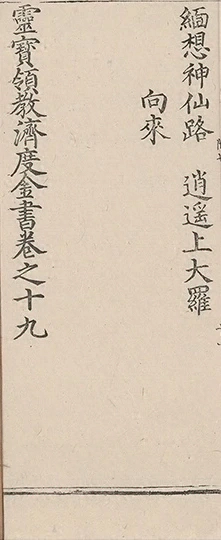 緬想神仙路　逍遥上大羅
向來
靈寶領教濟度金書卷之十九